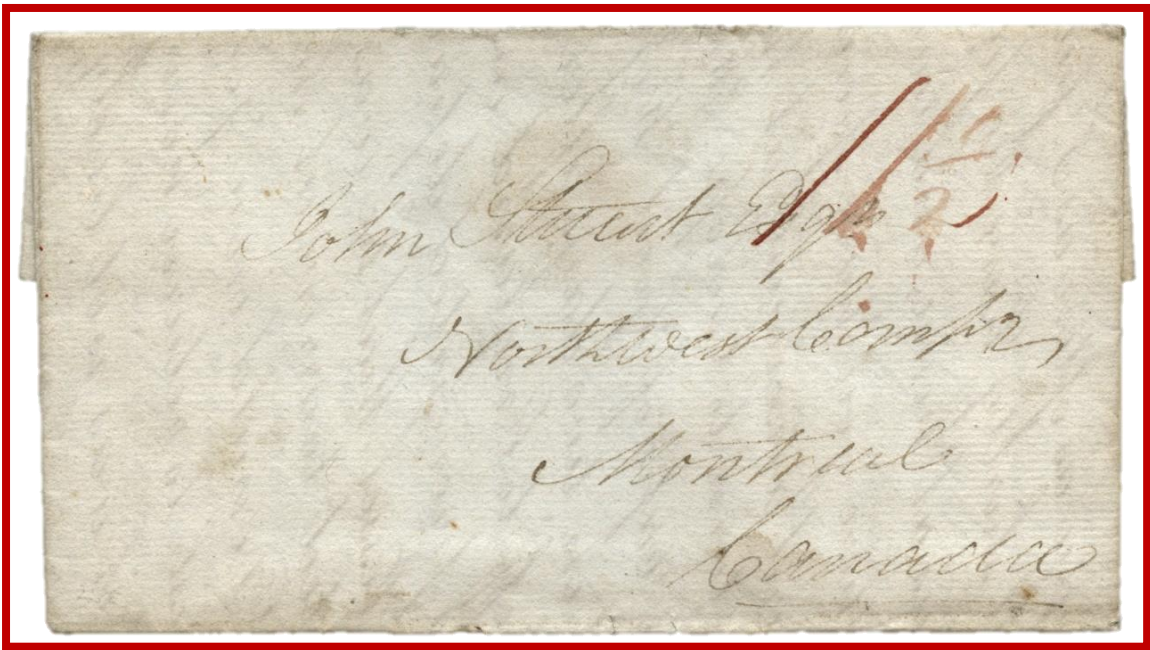 John Stuart Esqr
Northwest Compy
Montreal
Canada